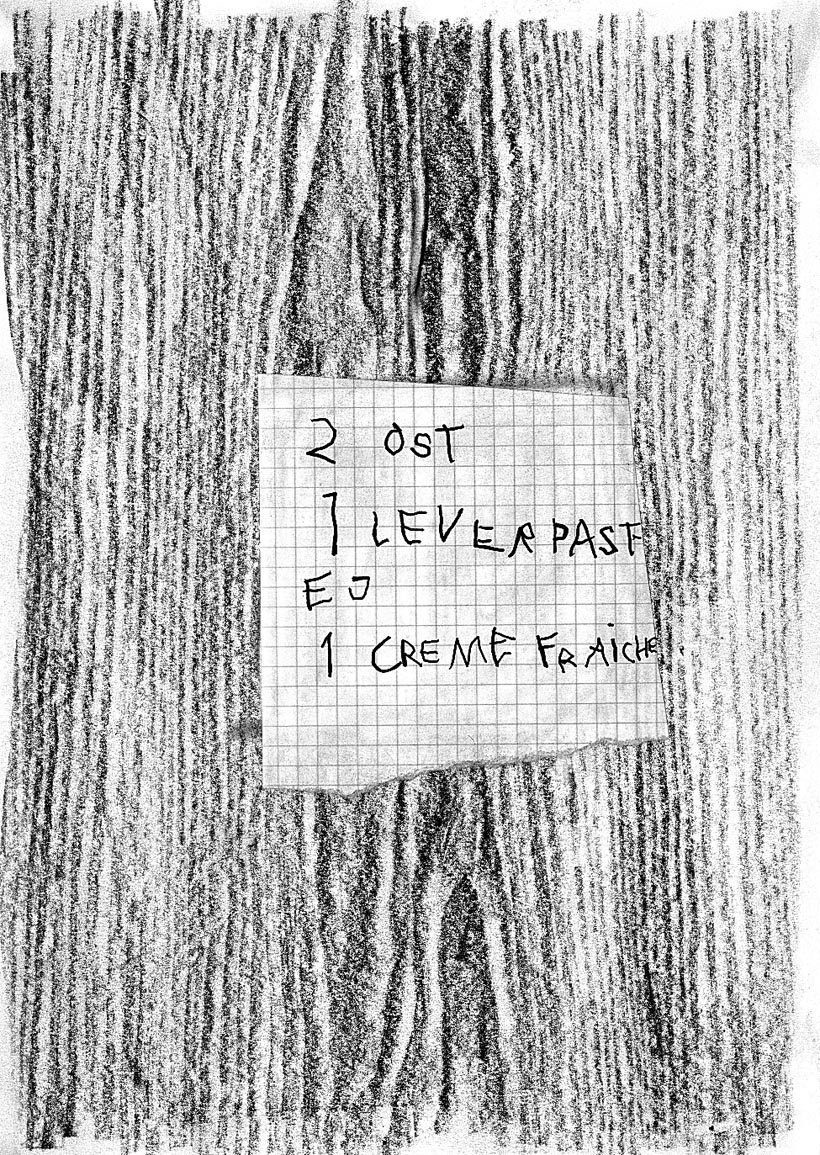 2 OST
1 LEVERPAST
EJ
1 CREME FRAICHE